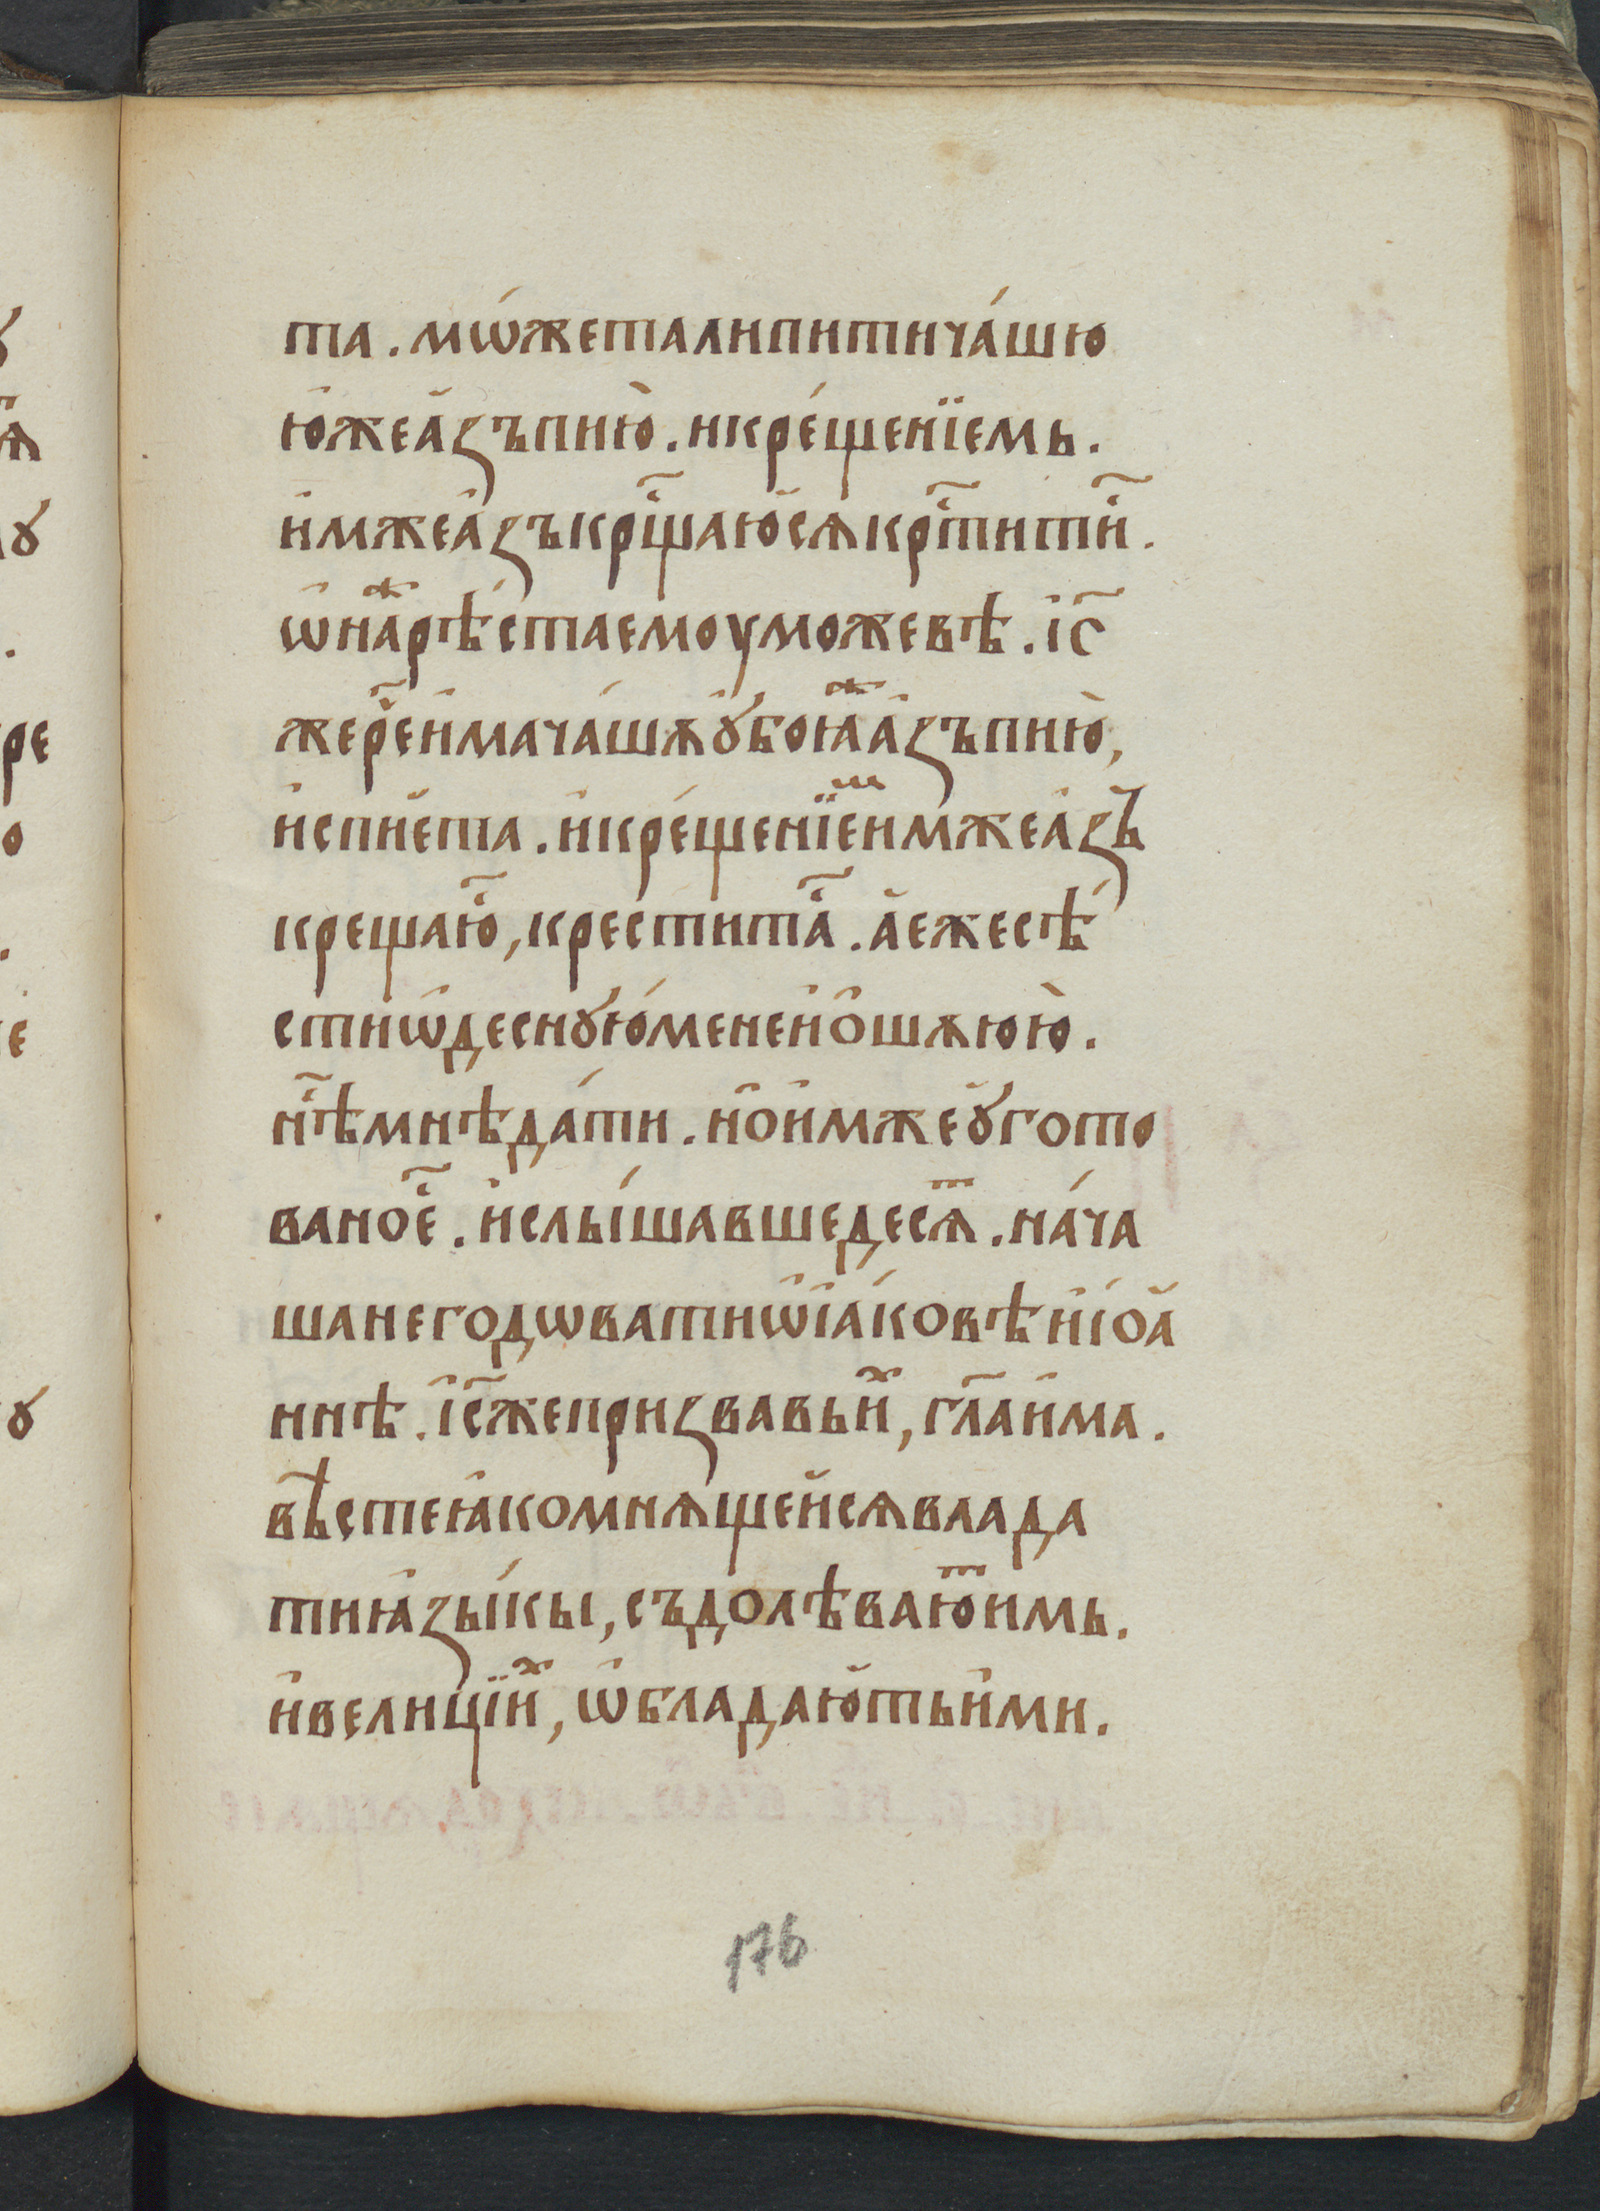 та. мѡ́жеталипитича́шю
ю҆жеа҆зъпию̀. икре́щенїемь.
и҆мжеа҆зъкрⷭ҇щаю҆сѧкрⷭ҇титиⷭ҇.
ѡ҆наⷤрѣ́стаемоуможевѣ. і҆с҃
жереⷱ҇и҆мача́шѫꙋ҆боꙗⷤа҆зъпию̀,
и҆спие҆та. и҆кре́щенїеⷨимжеа҆зъ
крещаюⷭ҇, креститаⷭ҇. а҆ежесѣ́
стиѡ҆деснꙋю́менеи҆ѻ҆шѫюю̀.
нⷭ҇ѣмнѣда́ти. нѻ҆и҆мжеꙋ҆гото
ваноеⷭ҇. и҆слы́шавшедесѧⷮ. на́ча
шанегодѡватиѡ҆іа́ковѣи҆і́ѻа҆
ннѣ. і҆с҃жепризвавьиⷯ, гл҃аи҆ма.
вѣ́стеꙗ҆комнѧщеи҆сѧвлада
тиꙗ҆зы́кы, съдолѣваюⷮимь.
и҆велицїиⷯ, ѡ҆бладаю҆тьи҆ми.
176